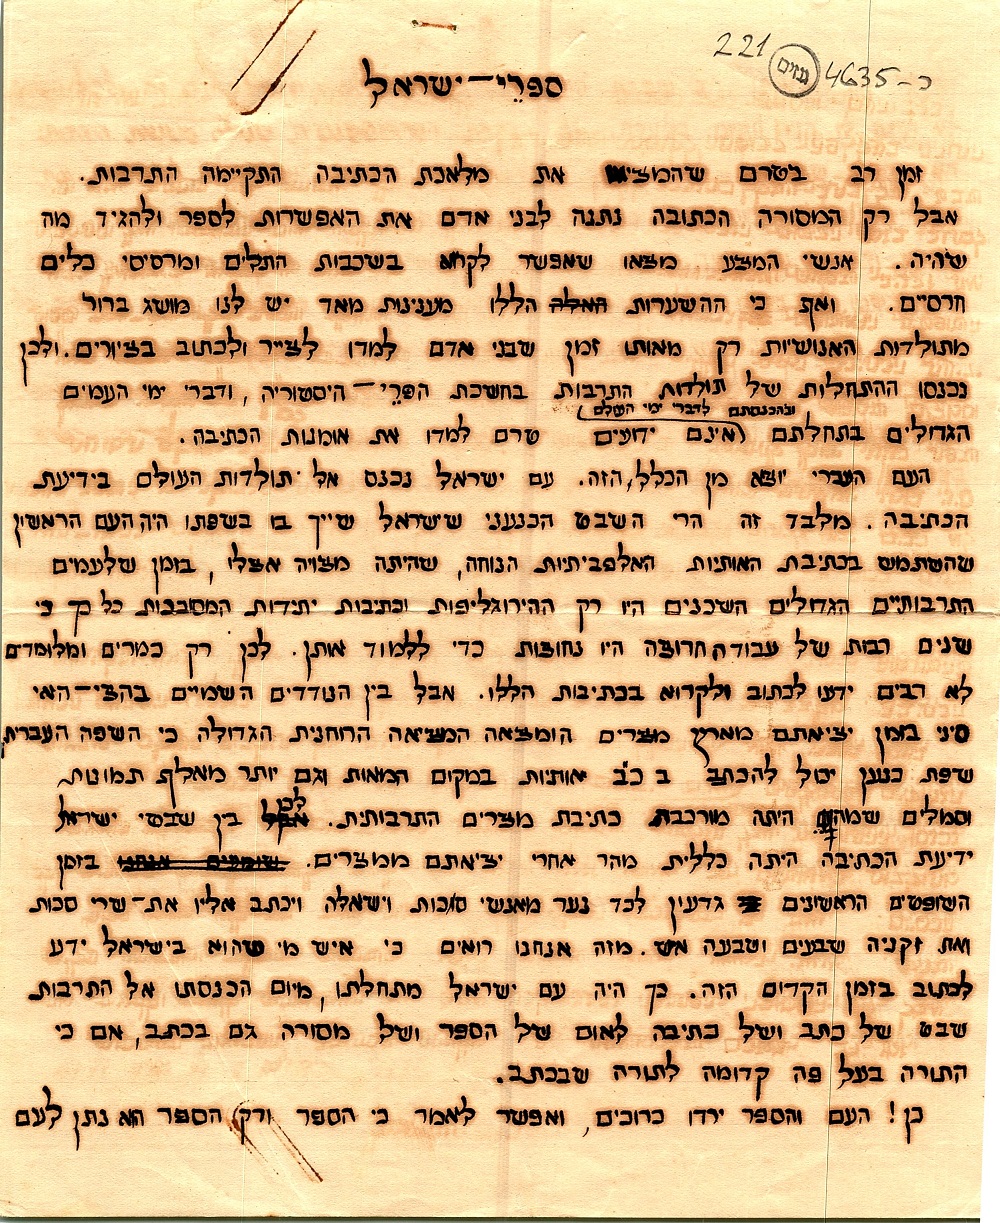 221 גנזים 4635-כ
ספרי-ישראל
זמן רב בטרם שהמציאו את מלאכת הכתיבה התקיימה התרבות.
אבל רק המסורה הכתובה נתנה לבני אדם את האפשרות לספר ולהגיד מה
שהיה. אנשי המצע מצאו שאפשר לקרוא בשכבות התלים ומרסיסי כלים
חרסיים. ואף כי ההשערות האלה הללו מענינות מאד יש לנו מושג ברור
מתולדות האנושיות רק מאותו זמן שבני אדם למדו לצייר ולכתוב בציורים. ולכן
נכנסו ההתחלות של תולדות התרבות בחשכת הפרֵי-היסטוריה, ודברי ימי העמים
ובהכנסתם לדברי ימי העולם
הגדולים בתחלתם אינם ידועים טרם למדו את אומנות הכתיבה.
העם העברי יוצא מן הכלל, הזה. עם ישראל נכנס אל תולדות העולים בידיעת
הכתיבה. מלבד זה הרי השבט הכנעני שישראל שייך בו בשפתו היה העם הראשון
שהשתמש בכתיבת האותיות האלפביתיות הנוחה, שהיתה מצויה אצלו, בזמן שלעמים
התרבותיים הגדולים השכנים היו רק ההירוגליפות וכתיבות יתידות המסובבות כל כך כי
שנים רבות של עבודה חרוצה היו נחוצות כדי ללמוד אותן. לכן רק כמרים ומלומדים
לא רבים ידעו לכתוב ולקרוא בכתיבות הללו. אבל בין הנודדים השמיים בהצי-האי
סיני בזמן יציאתם מארץ מצרים הומצאה המציאה הרוחנית הגדולה כי השפה העברית
שפת כנען יכול להכתב ב כ״ב אותיות במקום המאות וגם יותר מאלף תמונות
וסמלים שמהם היתה מורכבת כתיבת מצרים התרבותית. לכן בין שבטי ישראל
ידיעת הכתיבה היתה כללית מהר אחרי יציאתם ממצרים. שומעים אנחנו בזמן
השופטים הראשונים גדעין לכד נער מאנשי סוכות וישאלה ויכתב אליו את-שרי סכות
ואת זקניה שבעים ושבעה אש. מזה אנחנו רואים כי איש מי שהוא בישראל ידע
לכתוב בזמן הקדום הזה. כך היה עם ישראל מתחלתו, מיום הכנסתו אל התרבות
שבט של כתב ושל כתיבה לאום של הספר ושל מסורה גם בכתב, אם כי
התורה בעל פה קדומה לתורה שבכתב.
כן! העם והספר ירדו כרוכים, ואפשר לאמר כי הספר ורק הספר הוא נתן לעם